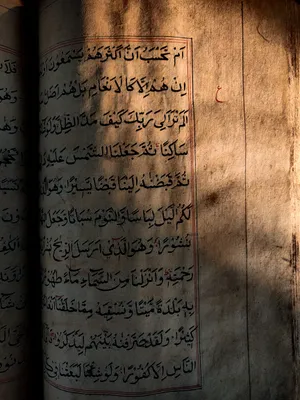 اَمْ تَحْسَبُ اَنَّ اَكْثَرَهُمْ يَسْمَعُونَ
اِنْ هُمْ اِلَّا كَالْاَنْعَامِ بَلْ هُمْ اَضَلُّ
اَلَمْ تَرَ اِلَى رَبِّكَ كَيْفَ مَدَّ الظِّلَّ
سَاكِنًا ثُمَّ جَعَلْنَا الشَّمْسَ عَلَيْهِ
ثُمَّ قَبَضْنٰهُ اِلَيْنَا قَبْضًا يَسِيرًا وَهُوَ
لَكُمُ الَّيْلَ لِبَاسًا وَالنَّوْمَ سُبَاتًا وَجَعَلَ
نُشُورًا وَهُوَ الَّذِي اَرْسَلَ الرِّيٰحَ
رَحْمَتِهِ وَاَنْزَلْنَا مِنَ السَّمَاءِ مَاءً طَهُورًا
بِهِ بَلْدَةً مَيْتًا وَنُسْقِيَهُ مِمَّا خَلَقْنَا
كَثِيرًا وَلَقَدْ صَرَّفْنٰهُ بَيْنَهُمْ لِيَذَّكَّرُوا
النَّاسِ اِلَّا كُفُورًا وَلَوْ شِئْنَا لَبَعَثْنَا
ع